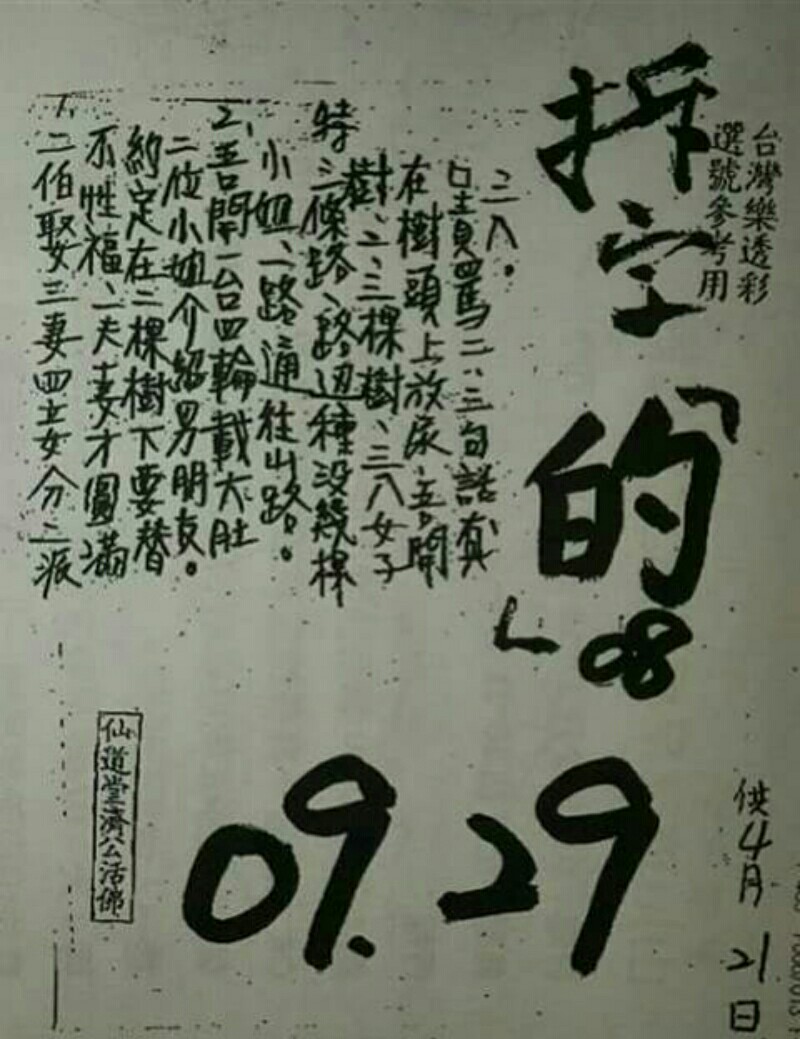 台灣樂透彩
選號參考用
拆字「的」
08
1、二伯娶三妻四妾分二派
不性福、夫妻才圓滿
約定在二棵樹下要替
二位小姐介紹男朋友。
2、吾開一台四輪載大肚
小姐、一路通往山路。
特 三條路、路边種沒幾棵
樹、二、三棵樹、三八女子
在樹頭上放尿、吾開
口責罵二、三句話真
三八。
09. 29
供4月21日
仙道堂濟公活佛